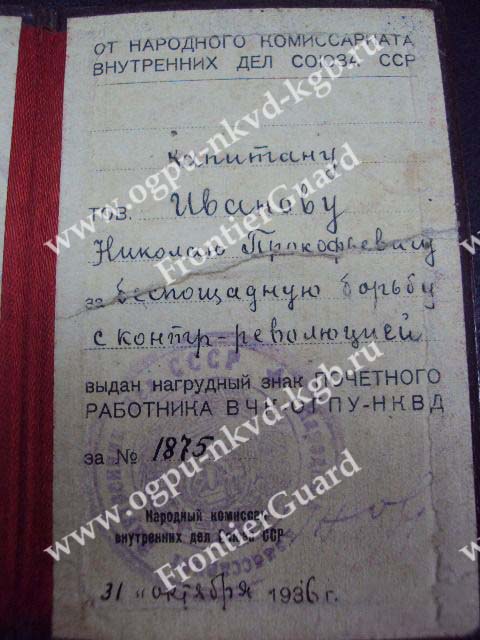 ОТ НАРОДНОГО КОМИССАРИАТА
ВНУТРЕННИХ ДЕЛ СОЮЗА ССР
Капитану
ТОВ. Иванову
Николаю Прокофьевичу
за беспощадную борьбу
с контр-революцией
выдан нагрудный знак ПОЧЕТНОГО
РАБОТНИКА ВЧК-ОГПУ-НКВД
за № 1875
Народный комиссар
внутренних дел Союза ССР
31 " октября 1936 г.
www.ogpu-nkvd-kgb.ru
FrontierGuard
www.ogpu-nkvd-kgb.ru
FrontierGuard
www.ogpu-nkvd-kgb.ru
FrontierGuard